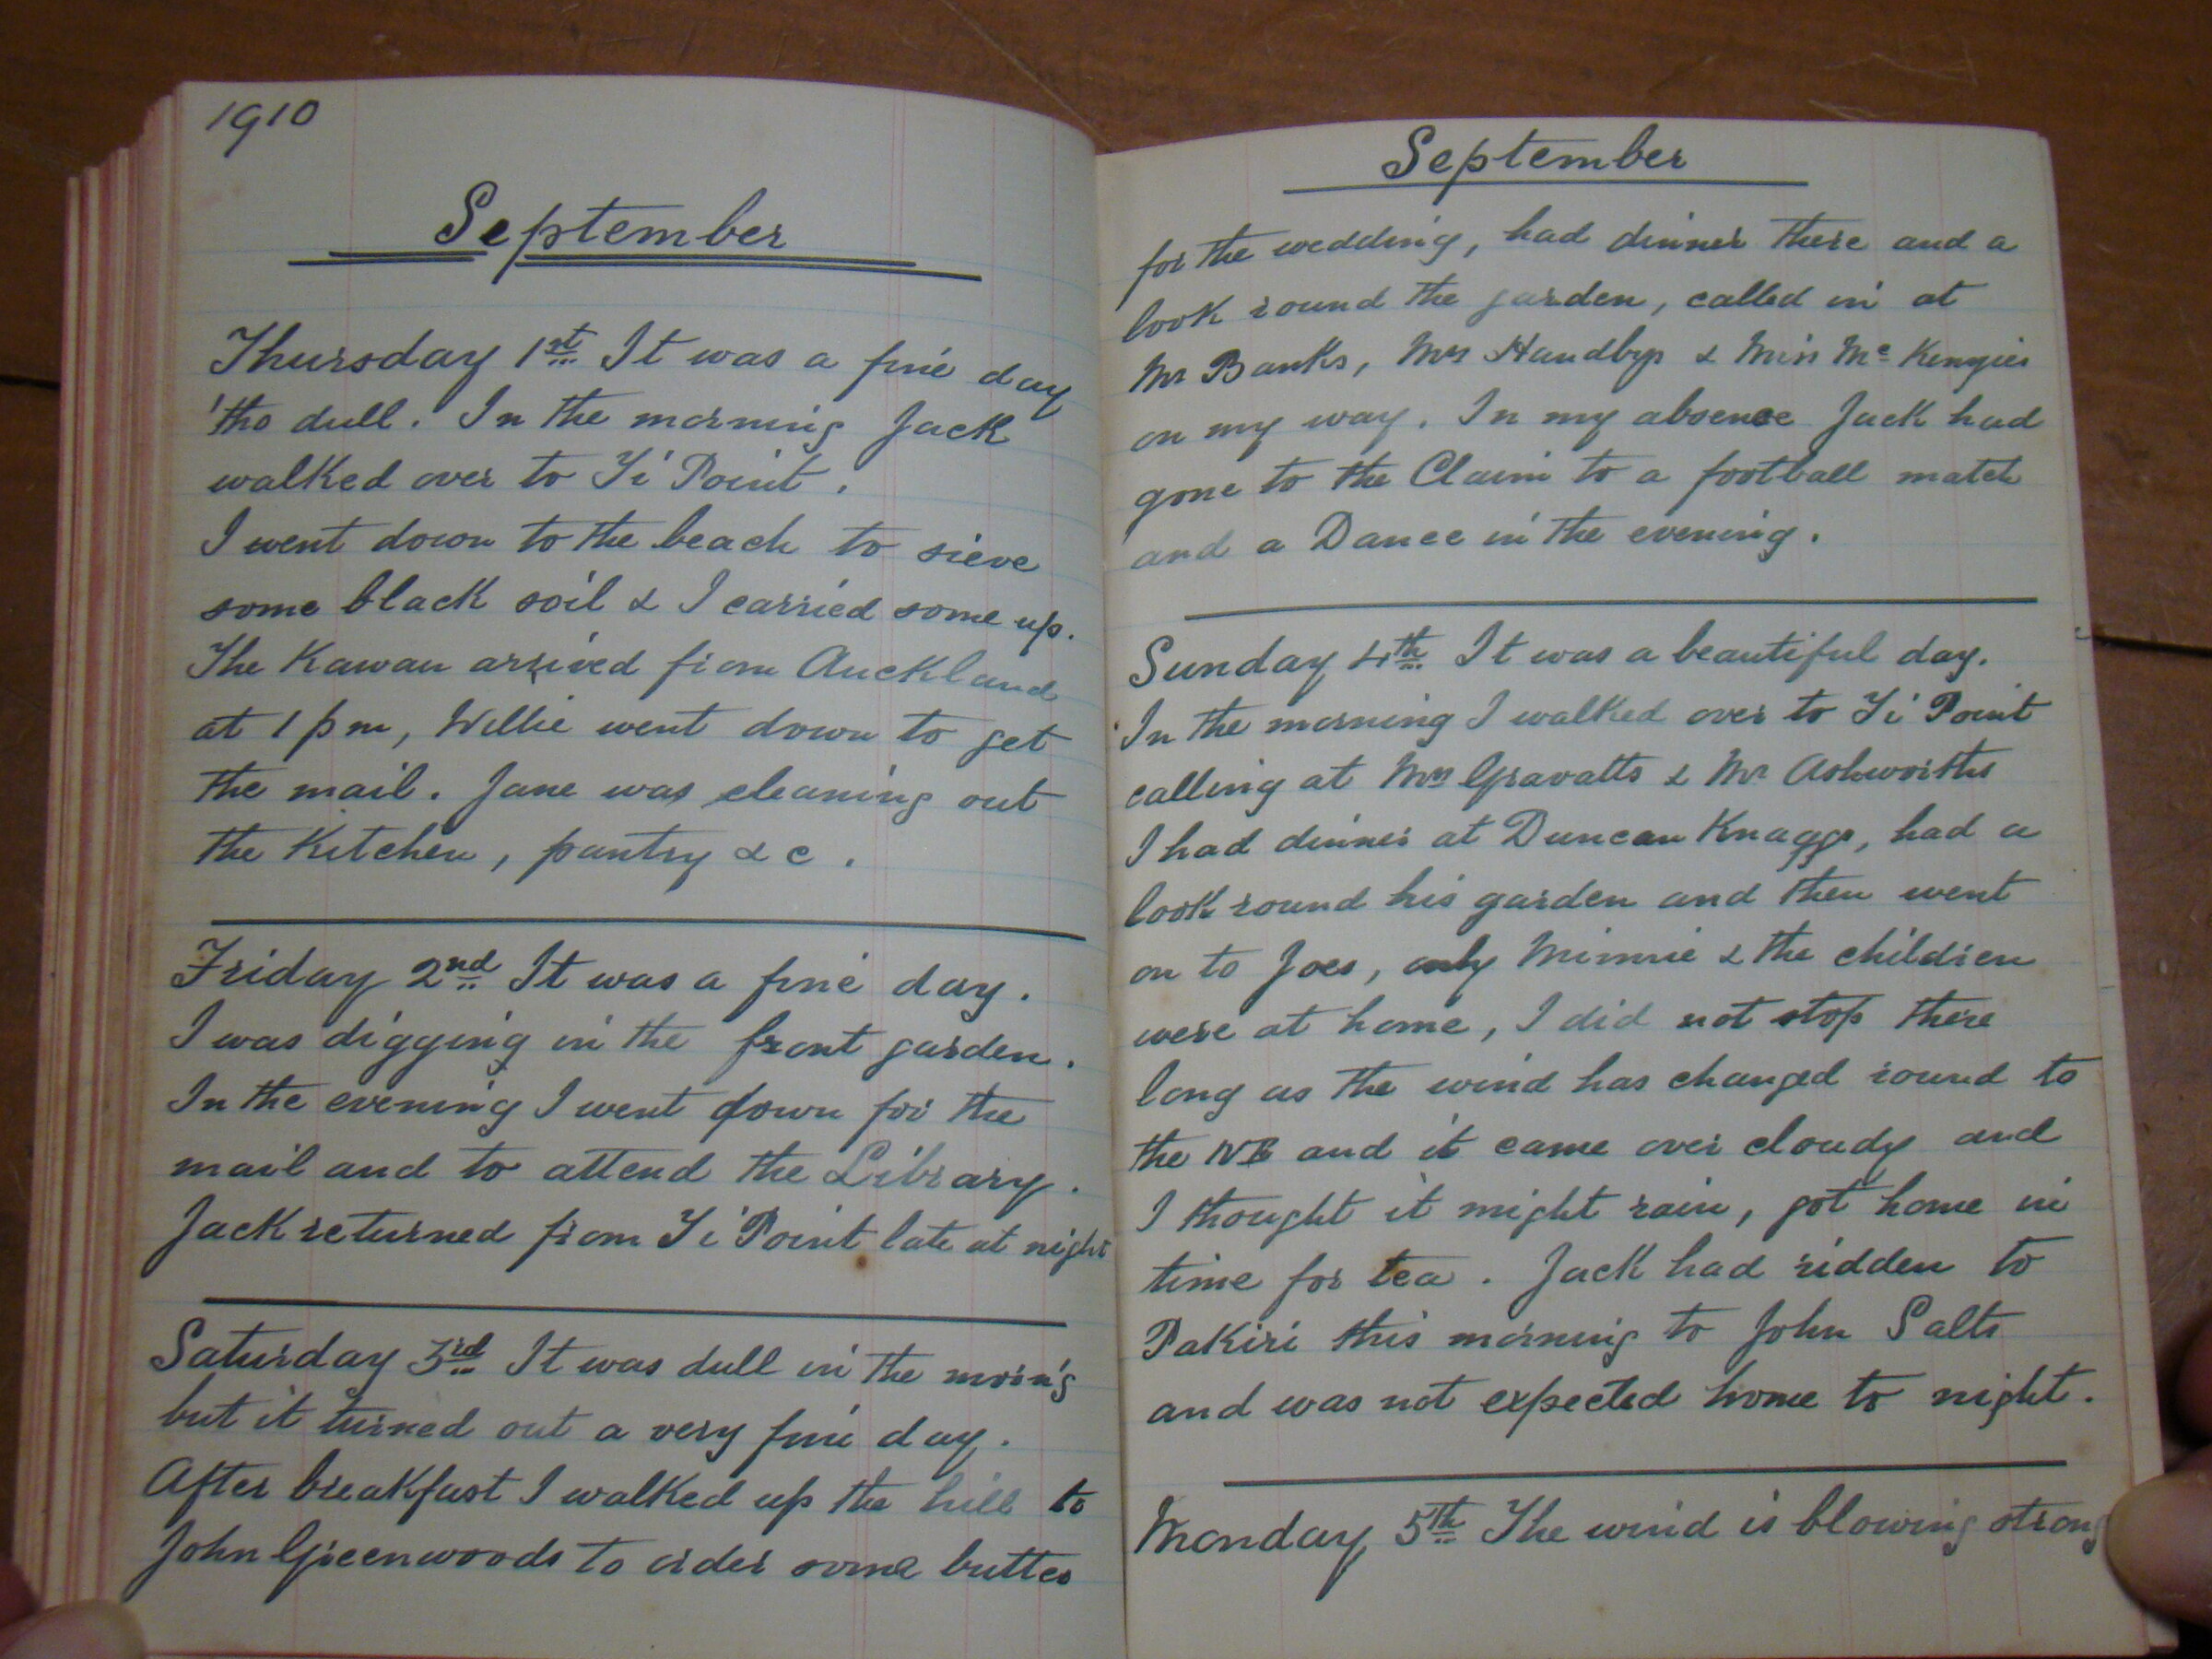 1910
September
Thursday 1st It was a fine day
'tho dull. In the morning Jack
walked over to Ti Point.
I went down to the beach to sieve
some black soil & I carried some up.
The Kawau arrived from Auckland
at 1 pm, Willie went down to get
the mail. Jane was cleaning out
the Kitchen, pantry &c.
Friday 2nd It was a fine day.
I was digging in the front garden.
In the evening I went down for the
mail and to attend the Library.
Jack returned from Ti Point late at night
Saturday 3rd It was dull in the morn'g
but it turned out a very fine day.
After breakfast I walked up the hill to
John Greenwoods to order some butter
September
for the wedding, had dinner there and a
look round the garden, called in at
Mr Banks, Mrs & Miss
on my way. In my absence Jack had
gone to the Claim to a football match
and a Dance in the evening.
Sunday 4th It was a beautiful day.
In the morning I walked over to Ti Point
calling at Mrs Gravatts & Mr Ashworths
I had dinner at Duncan Knaggs, had a
look round his garden and then went
on to Joes, only Minnie & the children
were at home, I did not stop there
long as the wind has changed round to
the NE and it came over cloudy and
I thought it might rain, got home in
time for tea. Jack had ridden to
Pakiri this morning to John Salts
and was not expected home to night.
Monday 5th The wind is blowing strong